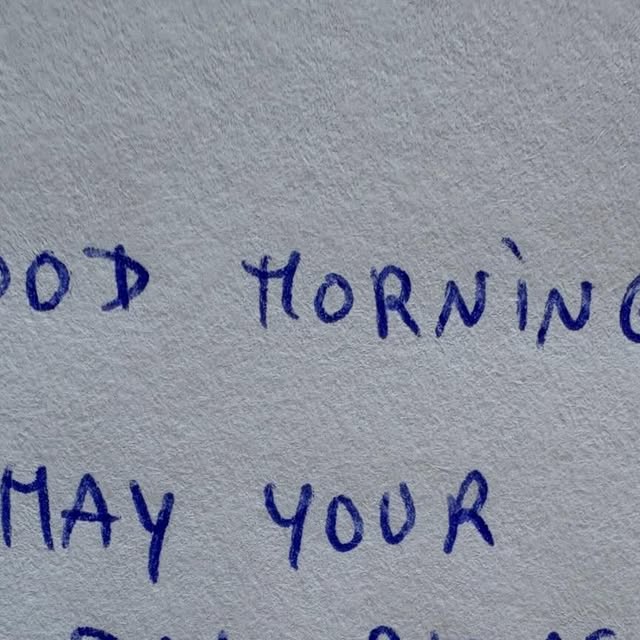 OOD MORNING
MAY YOUR